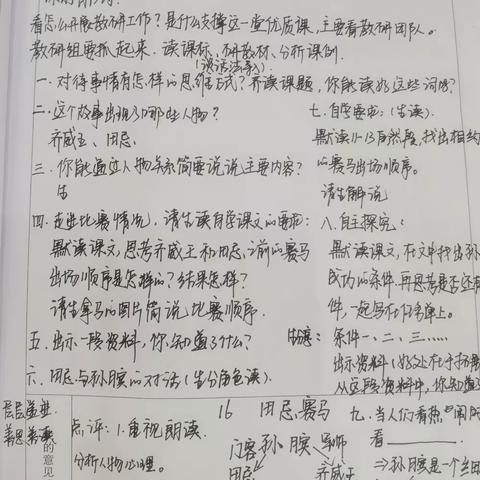 看怎么开展教研工作?是什么支撑这一堂优质课,主要看教研团队。
教研组要抓起来.读课标、研教材、分析课例.
一.对待事情有怎样的思维方式?齐读课题,你能读好这些词吗?
二.这个故事出现了哪些人物?
齐威王、田忌、
三.你能通过人物关系简要说说主要内容?
生
四.走进比赛情况,请生读自学课文的要求:
默读课文,思考齐威王和田忌之前的赛马
出场顺序是怎样的?结果怎样?
请生拿马的图片简说比赛顺序.
五.出示一段资料,你知道了什么?
六.田忌与孙膑的对话(生分角色读).
七.自学要求:(生读).
默读11-13自然段,找出相约
的赛马出场顺序。
请生解说
八.自主探究:
默读课文,在文中找出孙
成功的条件,再思考是否还有
件,一起写在作业单上。
条件一、二、三……
出示资料(好处在于
从这段资料中,你知道
点评:1.重视朗读.
分析人物心理。
的意见
16 田忌赛马
门客 孙膑 军师
田忌 齐威王
九.当人们看
看______.
⇒孙膑是一个